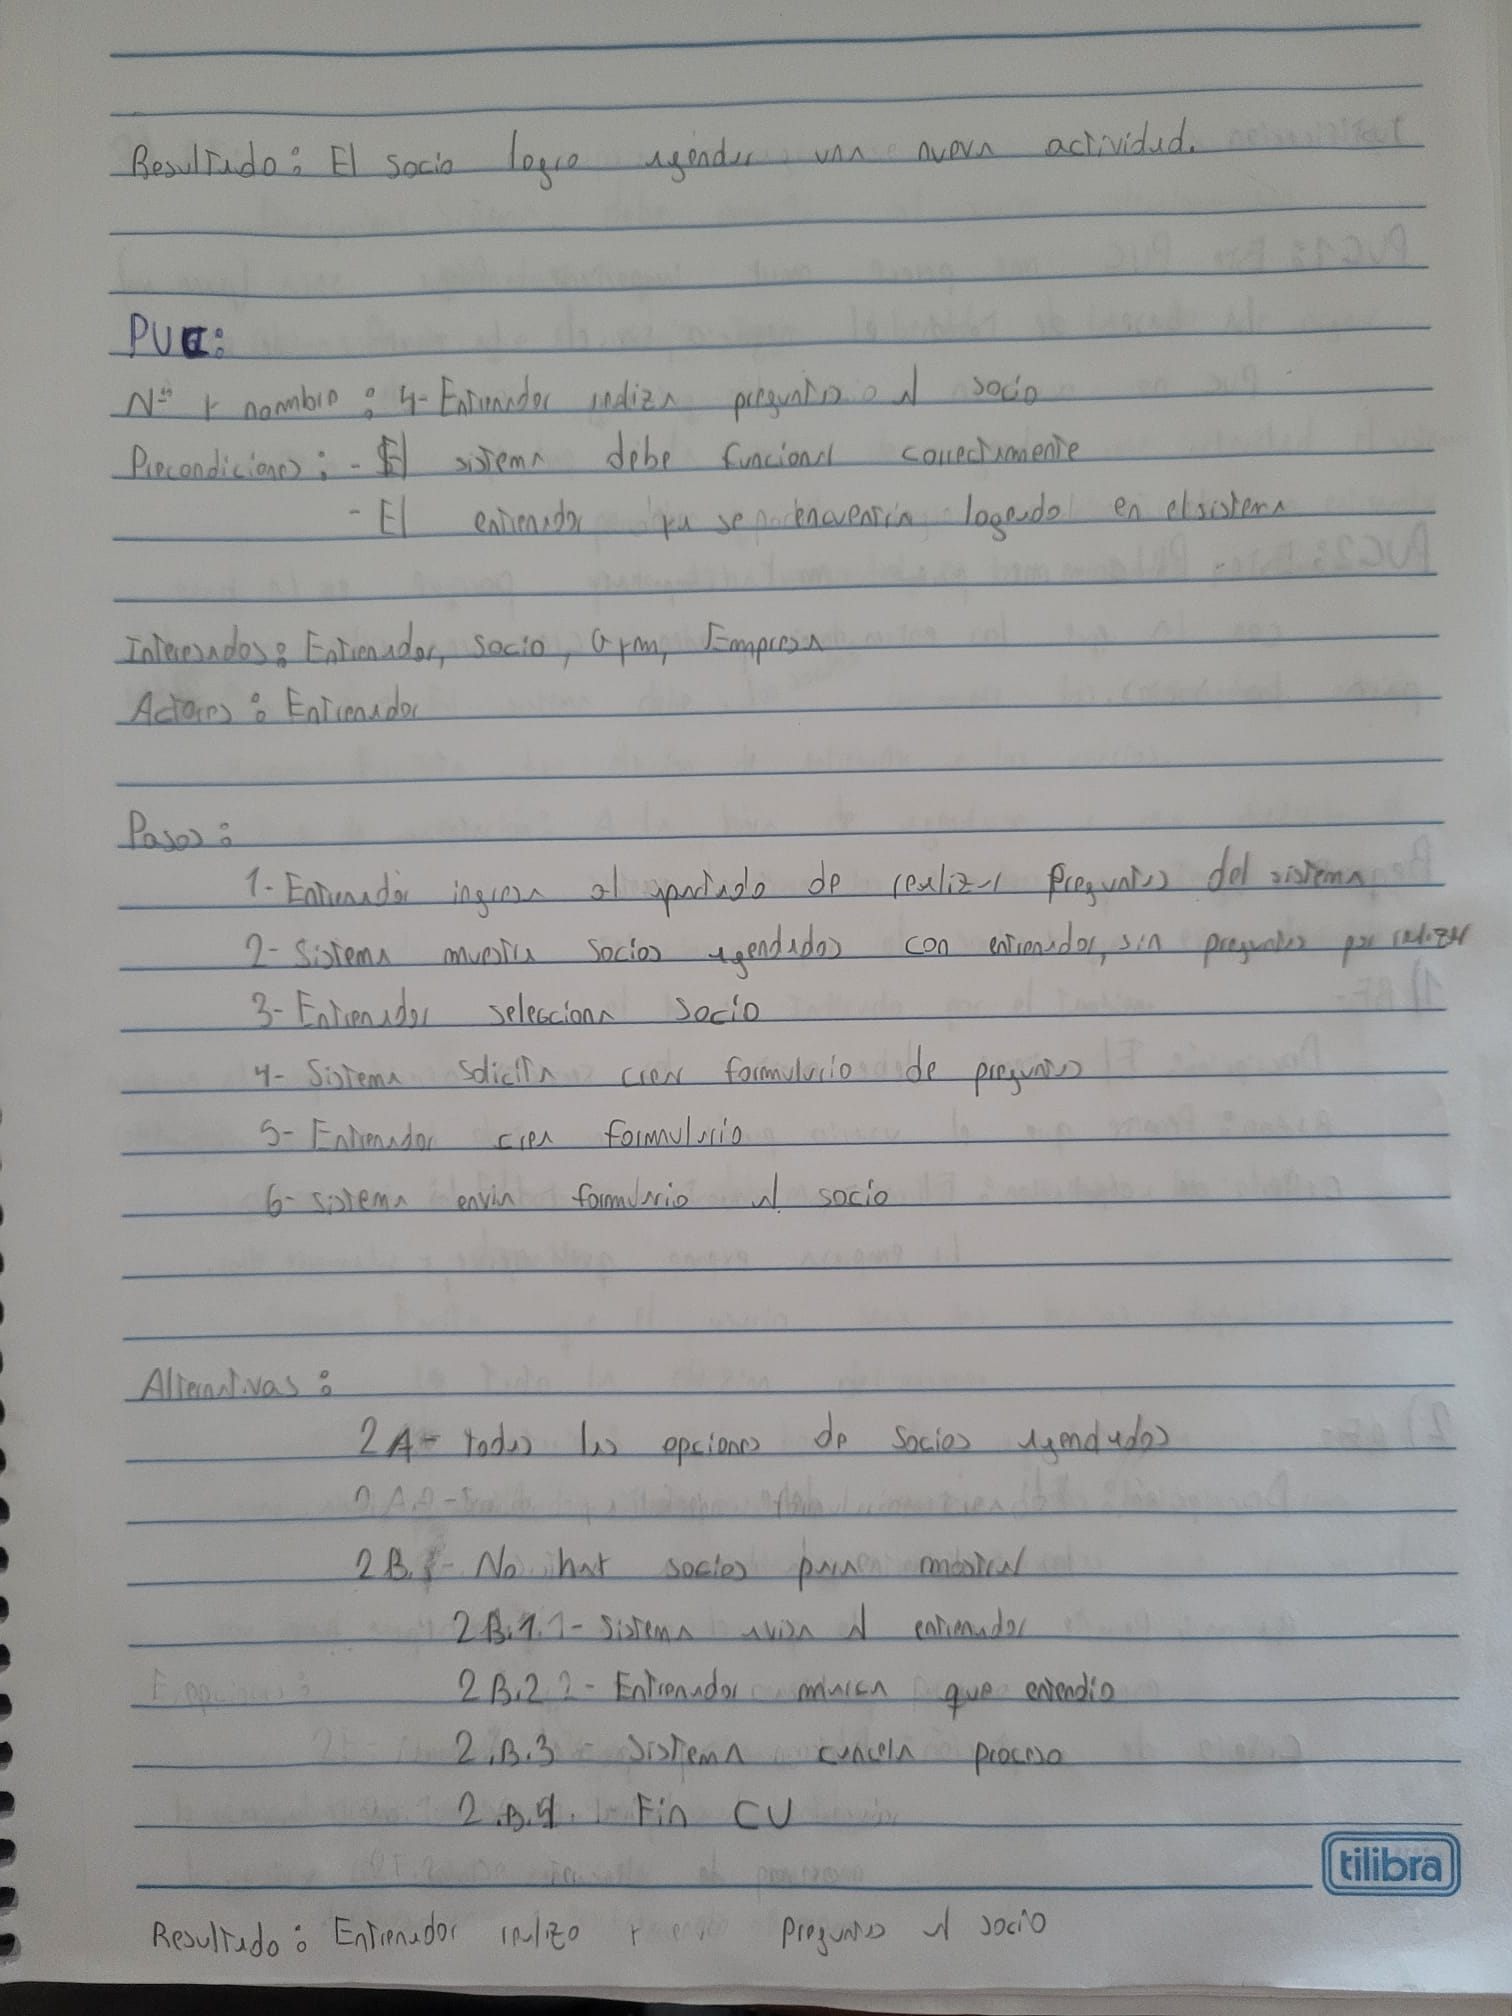 Resultado: El socio logro agendar una nueva actividad.
PUC:
Nº y nombre: 4- Entrenador realiza preguntas al socio
Precondiciones: - El sistema debe funcionar correctamente
- El entrenador ya se encuentra logeado en el sistema
Interesados: Entrenador, socio, Gym, Empresa
Actores: Entrenador
Pasos:
1- Entrenador ingresa al apartado de realizar preguntas del sistema
2- Sistema muestra socios agendados con entrenador, sin preguntas por realizar
3- Entrenador selecciona socio
4- Sistema solicita crear formulario de preguntas
5- Entrenador crea formulario
6- sistema envia formulario al socio
Alternativas:
2A- todas las opciones de socios agendados
2B. - No hay socios para mostrar
2B.1.1- Sistema avisa al entrenador
2B.2 2- Entrenador marca que entendio
2.B.3 - Sistema cancela proceso
2.B.4. Fin CU
tilibra
Resultado: Entrenador realizo y preguntas al socio